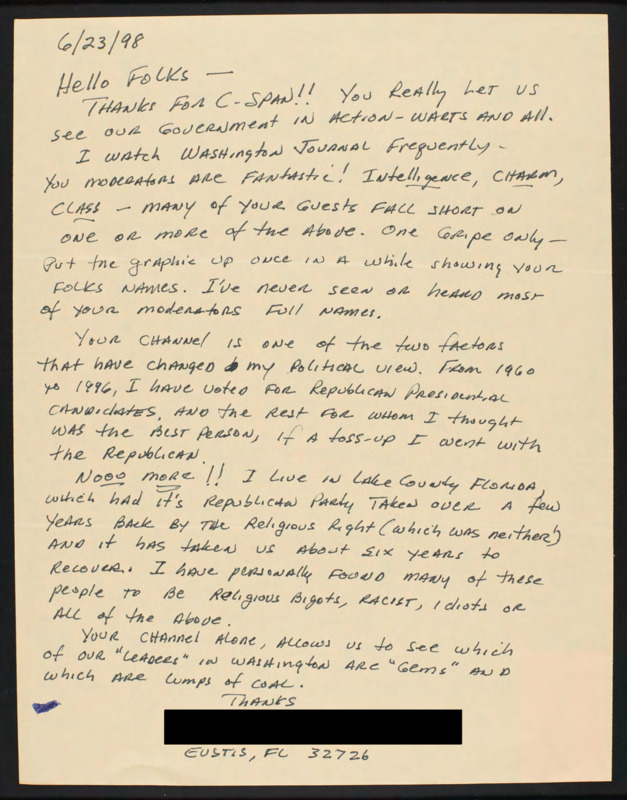 6/23/98
Hello Folks —
THANKS FOR C-SPAN!! You Really Let us
see our Government in Action - warts and All.
I watch Washington Journal frequently -
You moderators are fantastic! Intelligence, CHARM,
CLASS — many of your Guests FALL SHORT ON
one or more of the Above. One Gripe only —
Put the graphic up once in a while showing your
FOLKS NAMES. I've never seen or heard most
of your moderators Full names.
Your CHANNEL is one of the two factors
that have changed my Political view. From 1960
to 1996, I have voted for Republican Presidential
CANDIDATES, AND the Rest for whom I thought
was the Best Person, if a toss-up I went with
the Republican.
Nooo more!! I Live in Lake County Florida,
which had it's Republican Party Taken over a few
years Back By the Religious Right (which was neither!)
AND it has taken us about six years to
recover. I have personally found many of these
people to Be Religious Bigots, RACIST, Idiots or
ALL of the Above.
Your Channel Alone, allows us to see which
of our "Leaders" in Washington are "Gems" AND
which are Lumps of coal.
Thanks
Eustis, FL 32726